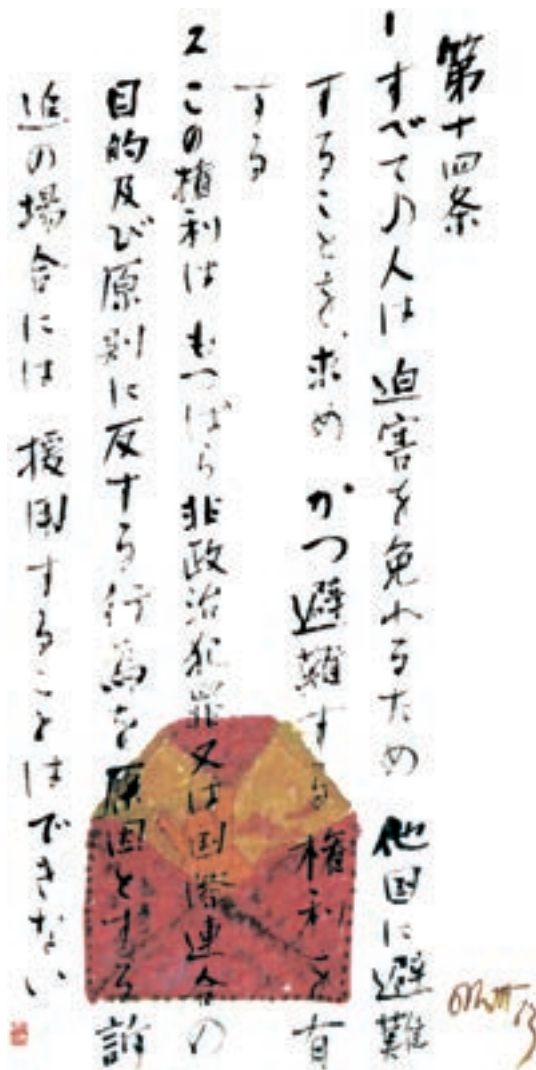 第十四条
1 すべての人は 迫害を免れるため 他国に避難
することを求め かつ避難する権利を有
する
2 この権利は もっぱら非政治犯罪又は国際連合の
目的及び原則に反する行為を原因とする訴
追の場合には 援用することはできない